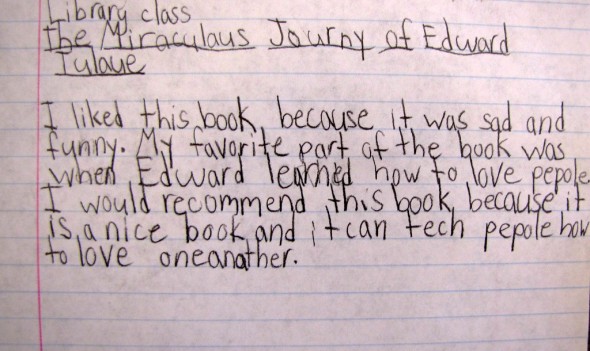 Library class
The Miraculaus Journy of Edward
Tulaue
I liked this book, because it was sad and
funny. My favorite part of the book was
when Edward learned how to love pepole
I would recommend this book, because it
is a nice book and it can tech pepole how
to love oneanather.